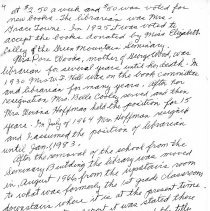 at $2.50 a week and $50 was voted for
new books. The librarian was Mrs.
Grace Towne. In 1925 it was voted to
accept the books donated by Miss Elizabeth
Colley of the Green Mountain Seminary.
Miss Pure Brooks, mother of George Woods, was
librarian for several years until her death. In
1930 Mrs. W. F. Hill was on the book committee
and librarian for many years. After her
resignation Mrs. Belle Conley served and then
Mrs. Norma Hoffman held the position for 15
years. In July of 1964 Mrs. Hoffman resigned
and I assumed the position of librarian
until Jan 1983.
After the removal of the school from the
Seminary Building the library was moved
in August 1966 from the upstairs room
to what was formerly the 1st grade classroom
downstairs where it is at the present time.
it was stated there